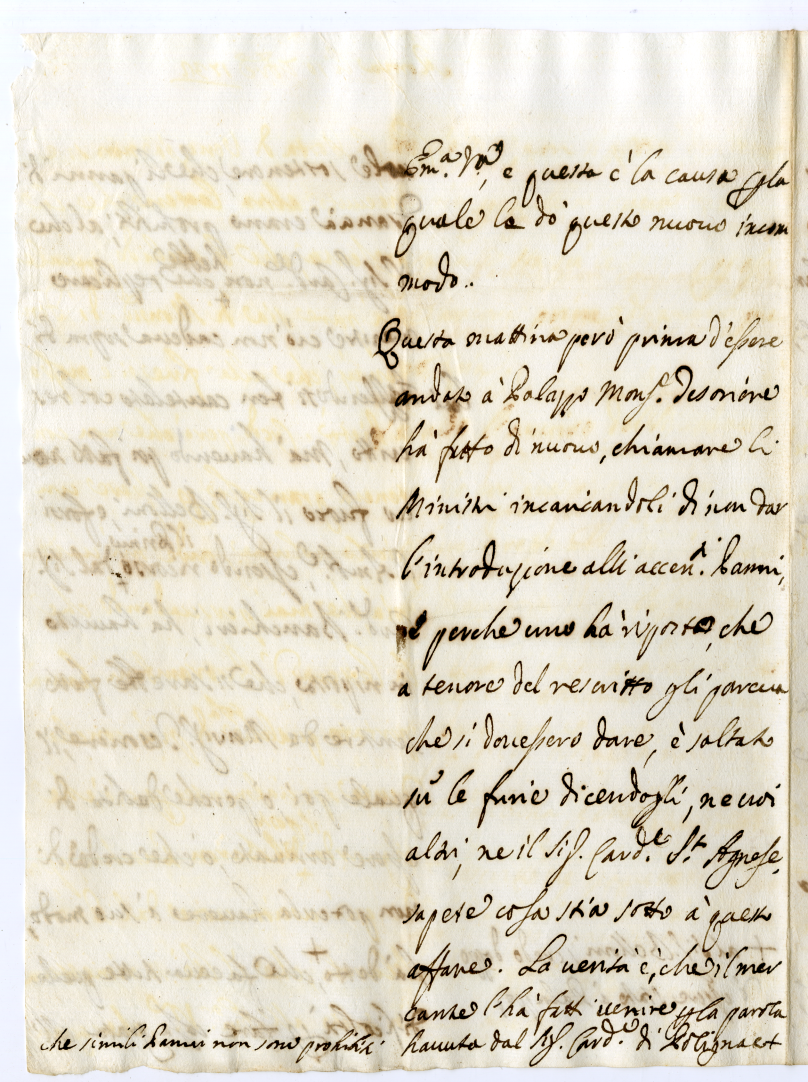 Em.a V.ra, e questa è la causa p la
quale le dò questo nuovo incom
modo..
Questa mattina però prima d'essere
andato à Palazzo Mons.e Descrione
hà fatto di nuovo, chiamare li
Ministri incaricandoli di non dar
l'introduzione alli accen.ti Panni,
e perche uno hà riposto, che
a tenore del rescritto gli pareva
che si dovessero dare, è saltato
sù le furie dicendogli, ne voi
altri, ne il Sig. Card.le S.t Agnese,
sapete cosa stia sotto à questo
affare. La verità è, che il mer
cante l'hà fatti venire p la parola
havuta dal Sig. Card.le di Polignac +
che simili Panni non sono prohibiti